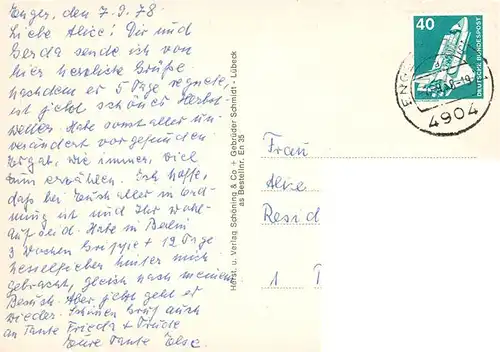 Enger, den 7.9.78
Liebe Alice! Dir und
Gerda sende ich von
hier herzliche Grüße.
Nachdem er 5 Tage regnete
ist jetzt schönes Herbst-
wetter. Habe sonst aller un-
verändert vorgefunden.
Er gab, wie immer, viel
zum erzählen. Ich hoffe,
daß bei Euch aller in Ord-
nung ist und Ihr wohl-
auf seid. Habe in Berlin
3 Wochen Grippe + 12 Tage
hinter mich
gebracht, gleich nach meinem
Besuch. Aber jetzt geht er
wieder. Schönen Gruß auch
an Tante Frieda + Trude
Eure Tante Else.
Herst. u. Verlag Schöning & Co + Gebrüder Schmidt - Lübeck
as Bestellnr. En 35
40
DEUTSCHE BUNDESPOST
ENG
4904
Frau
Alice
Resid
1